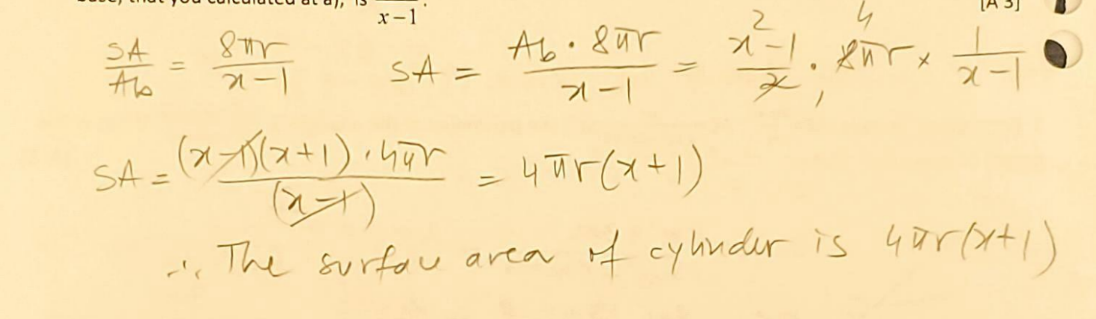 case, that you calculated at a), is ⎯/(x−1). [A 3]
SA/Ab = 8πr/(x−1) SA = (Ab · 8πr)/(x−1) = (x²−1)/2 · 8πr × 1/(x−1)
4
1
SA = ((x−1)(x+1) · 4πr)/(x−1) = 4πr(x+1)
∴ The surfau area of cylinder is 4πr(x+1)